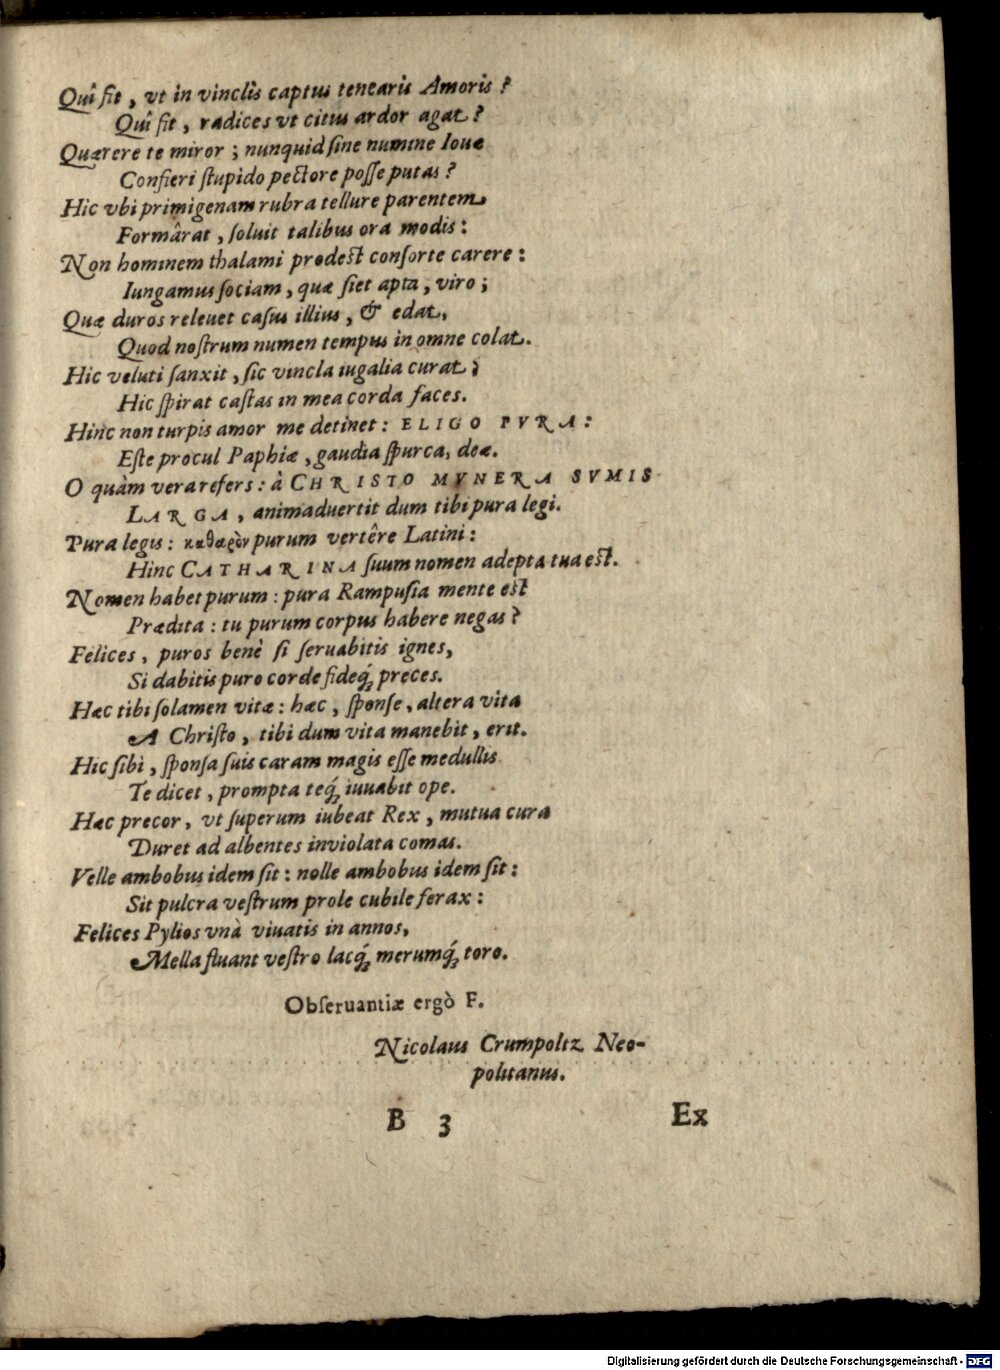 Quî fit, vt in vinclìs captus tenearis Amoris?
Quî fit, radices vt citus ardor agat?
Quærere te miror; nunquid sine numine Iouæ
Confieri stupido pectore posse putas?
Hic vbi primigenam rubra tellure parentem
Formârat, soluit talibus ora modis:
Non hominem thalami prodest consorte carere:
Iungamus sociam, quæ siet apta, viro;
Quæ duros releuet casus illius, & edat,
Quod nostrum numen tempus in omne colat.
Hic veluti sanxit, sic vincla iugalia curat;
Hic spirat castas in mea corda faces.
Hinc non turpis amor me detinet: ELIGO PVRA:
Este procul Paphiæ, gaudia spurca, deæ.
O quàm vera refers: à CHRISTO MVNERA SVMIS
LARGA, animaduertit dum tibi pura legi.
Pura legis: καθαρὸν purum vertêre Latini:
Hinc CATHARINA suum nomen adepta tua est.
Nomen habet purum: pura Rampusia mente est
Prædita: tu purum corpus habere negas?
Felices, puros benè si seruabitis ignes,
Si dabitis puro corde fideq́; preces.
Hæc tibi solamen vitæ: hæc, sponse, altera vita
A Christo, tibi dum vita manebit, erit.
Hic sibi, sponsa suis caram magis esse medullis
Te dicet, prompta teq́; iuuabit ope.
Hæc precor, vt superum iubeat Rex, mutua cura
Duret ad albentes inviolata comas.
Velle ambobus idem sit: nolle ambobus idem sit:
Sit pulcra vestrum prole cubile ferax:
Felices Pylios vnà viuatis in annos,
Mella fluant vestro lacq́; merumq́; toro.
Obseruantiæ ergò F.
Nicolaus Crumpoltz Neo-
politanus.
B 3 Ex
Digitalisierung gefördert durch die Deutsche Forschungsgemeinschaft - DFG